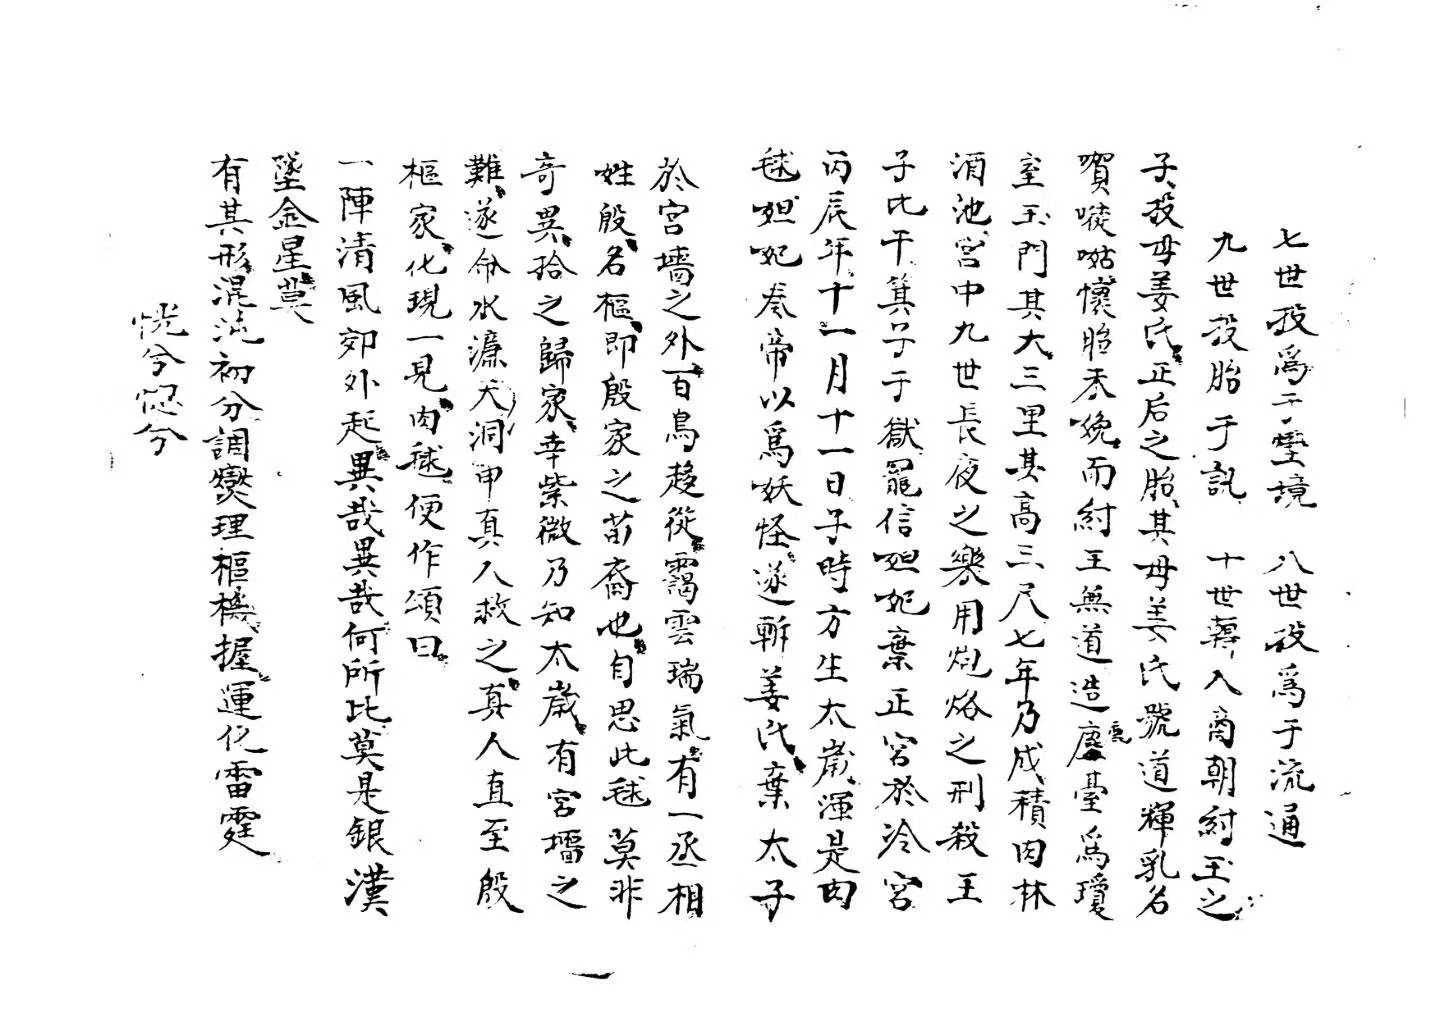 七世投爲于璧境　八世投爲于流通
九世投胎于訊　十世轉入商朝紂王之
子投母姜氏正后之胎其母姜氏號道輝乳名
喫㗋㗅懷胎未娩而紂王無道造鹿臺爲瓊
室玉門其大三里其高三尺七年乃成積肉林
酒池宮中九世長夜之樂用炮烙之刑殺王
子比干箕子于獄寵信妲妃棄正宮於冷宮
丙辰年十一月十一日子時方生太歲渾是肉
毬妲妃奏帝以爲妖怪遂斬姜氏棄太子
於宮墻之外百鳥趍從靄雲瑞氣有一丞相
姓殷名樞即殷家之苗裔也自思此毬莫非
奇異拾之歸家幸紫微乃知太歲有宮墻之
難遂命水濂天洞申真人救之真人直至殷
樞家化現一見肉毬便作頌曰
一陣清風郊外起異哉異哉何所比莫是銀漢
墜金星莫
有其形混沌初分調燮理樞機握運化雷霆
恍兮惚兮